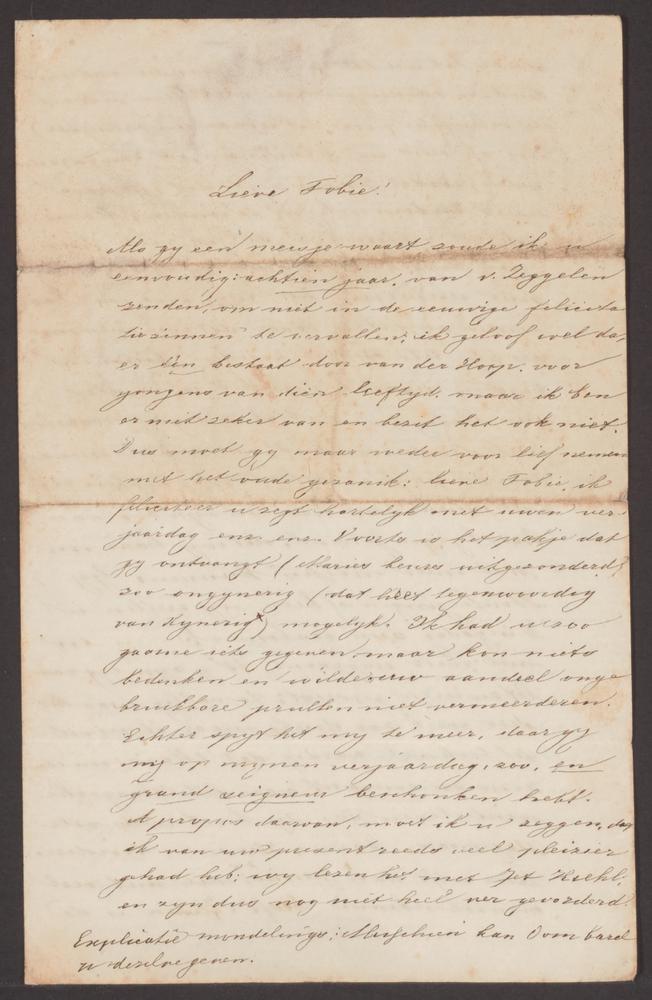 Lieve Fobie!
Als gy een meisje waart, zoude ik u
eenvoudig: achtien jaar, van v. Zeggelen
zenden, om niet in de eeuwige felicita
tiezinnen te vervallen; ik geloof wel dat
er één bestaat door van der Hoop, voor
jongens van dien leeftyd, maar ik ben
er niet zeker van en bezit het ook niet.
Dus moet gy maar weder voor lief nemen
met het oude gezanik: lieve Fobie, ik
feliciteer u zegt hartelyk met uwen ver
jaardag enz. enz. Voorts is het pakje dat
gy ontvangt (Maries beurs uitgezonderd)
zoo ongynerig (dat heet tegenwoordig
van Kynerig x) mogelyk. Ik had u zoo
gaarne iets gegeven, maar kon niets
bedenken en wilde uw aandeel onge
bruikbare prullen niet vermeerderen.
Echter spyt het my te meer, daar gy
my op mynen verjaardag, zoo, en
grand seigneur beschonken hebt.
A propos daarvan, moet ik u zeggen, dat
ik van uw present reeds veel pleizier
gehad heb; wy lezen het met Jet Kiehl,
en zyn dus nog niet heel ver gevorderd.
Explicatie mondelings; Misschien kan Oom Karel
u dezelve geven.